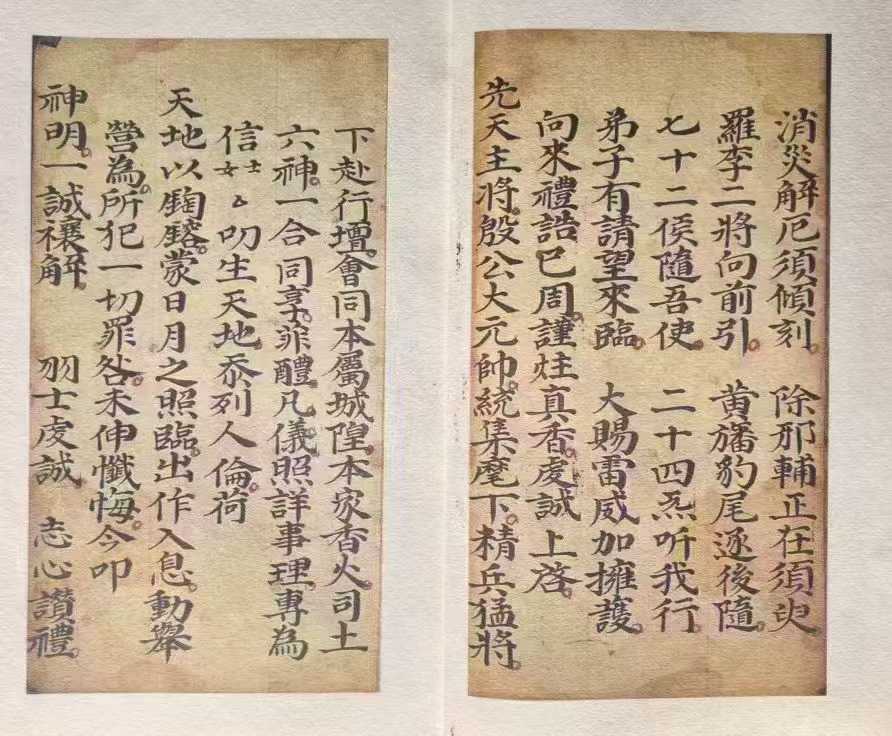 消災解厄須傾刻。　除邪輔正在須臾
羅李二將向前引。　黄旛豹尾逐後隨。
七十二侯隨吾使　二十四炁听我行。
弟子有請望來臨。　大賜雷威加擁護。
向來禮誥已周。謹炷真香。虔誠上啓。
先天主將。殷公大元帥。統集麾下。精兵猛將。
下赴行壇。會同本屬城隍。本家香火。司土
六神。一合同享。菲醴。凡儀照詳事理。專為
信士女厶叨生天地。忝列人倫。荷
天地以鞠𨪕。蒙日月之照臨。出作入息。動舉
營為。所犯一切罪咎。未伸懺悔。今叩
神明。一誠禳解　羽士虔誠　志心讚禮。